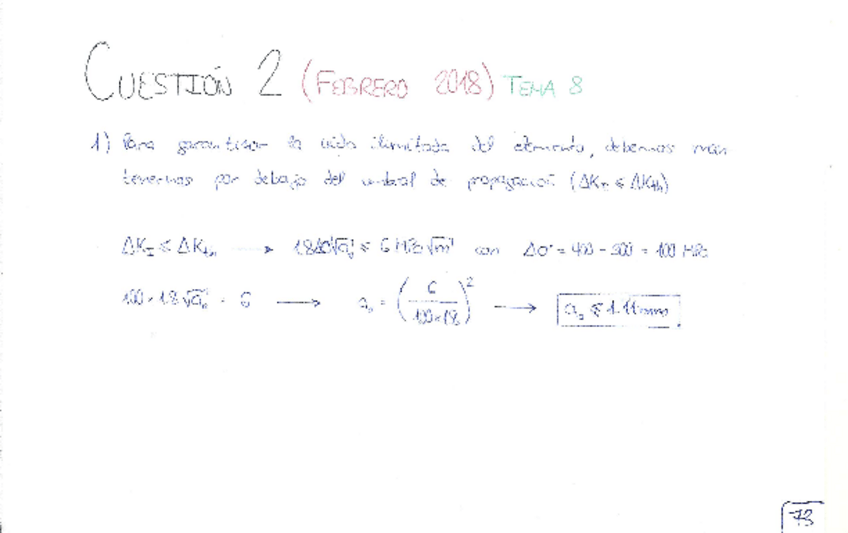 CUESTIÓN 2 (FEBRERO 2018) TEMA 8
1) Para garantizar la vida ilimitada del elemento, debemos man
tenernos por debajo del umbral de propagación (ΔK_I ≤ ΔK_th)
ΔK_I ≤ ΔK_th → 1.8Δσ√a₀ ≤ 6 MPa√m con Δσ = 400 - 300 = 100 MPa
100 · 1.8 √a₀ = 6 → a₀ = (6 / 100×1.8)² → a₀ ≤ 1.11 mm
73